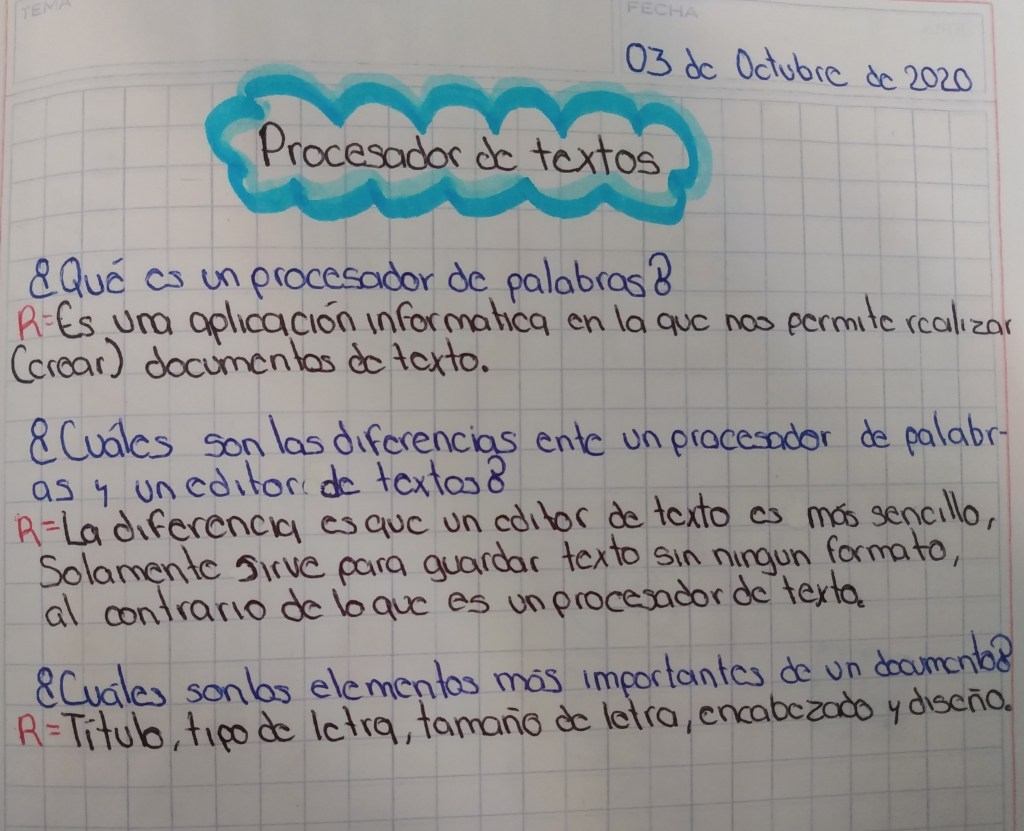 TEMA
FECHA
03 de Octubre de 2020
Procesador de textos
¿Qué es un procesador de palabras?
R=Es una aplicación informatica en la que nos permite realizar
(crear) documentos de texto.
¿Cuáles son las diferencias ente un procesador de palabr-
as y un editor de textos?
R=La diferencia es que un editor de texto es más sencillo,
Solamente sirve para guardar texto sin ningun formato,
al contrario de lo que es un procesador de texto.
¿Cuáles son los elementos más importantes de un documento?
R=Titulo, tipo de letra, tamaño de letra, encabezado y diseño.